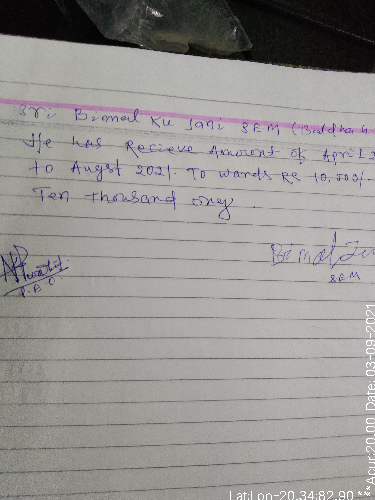 Sri Bimal Ku Jani SEM (Baldha
He has Recieve Amount of April 2
to Augst 2021. To wards Rs 10,000/-
Ten thousand only.
P.E.O.
Bimal Jani
SEM
Lat:Lon-20.34:82.90 ***Acur:20.00 Date: 03-09-2021